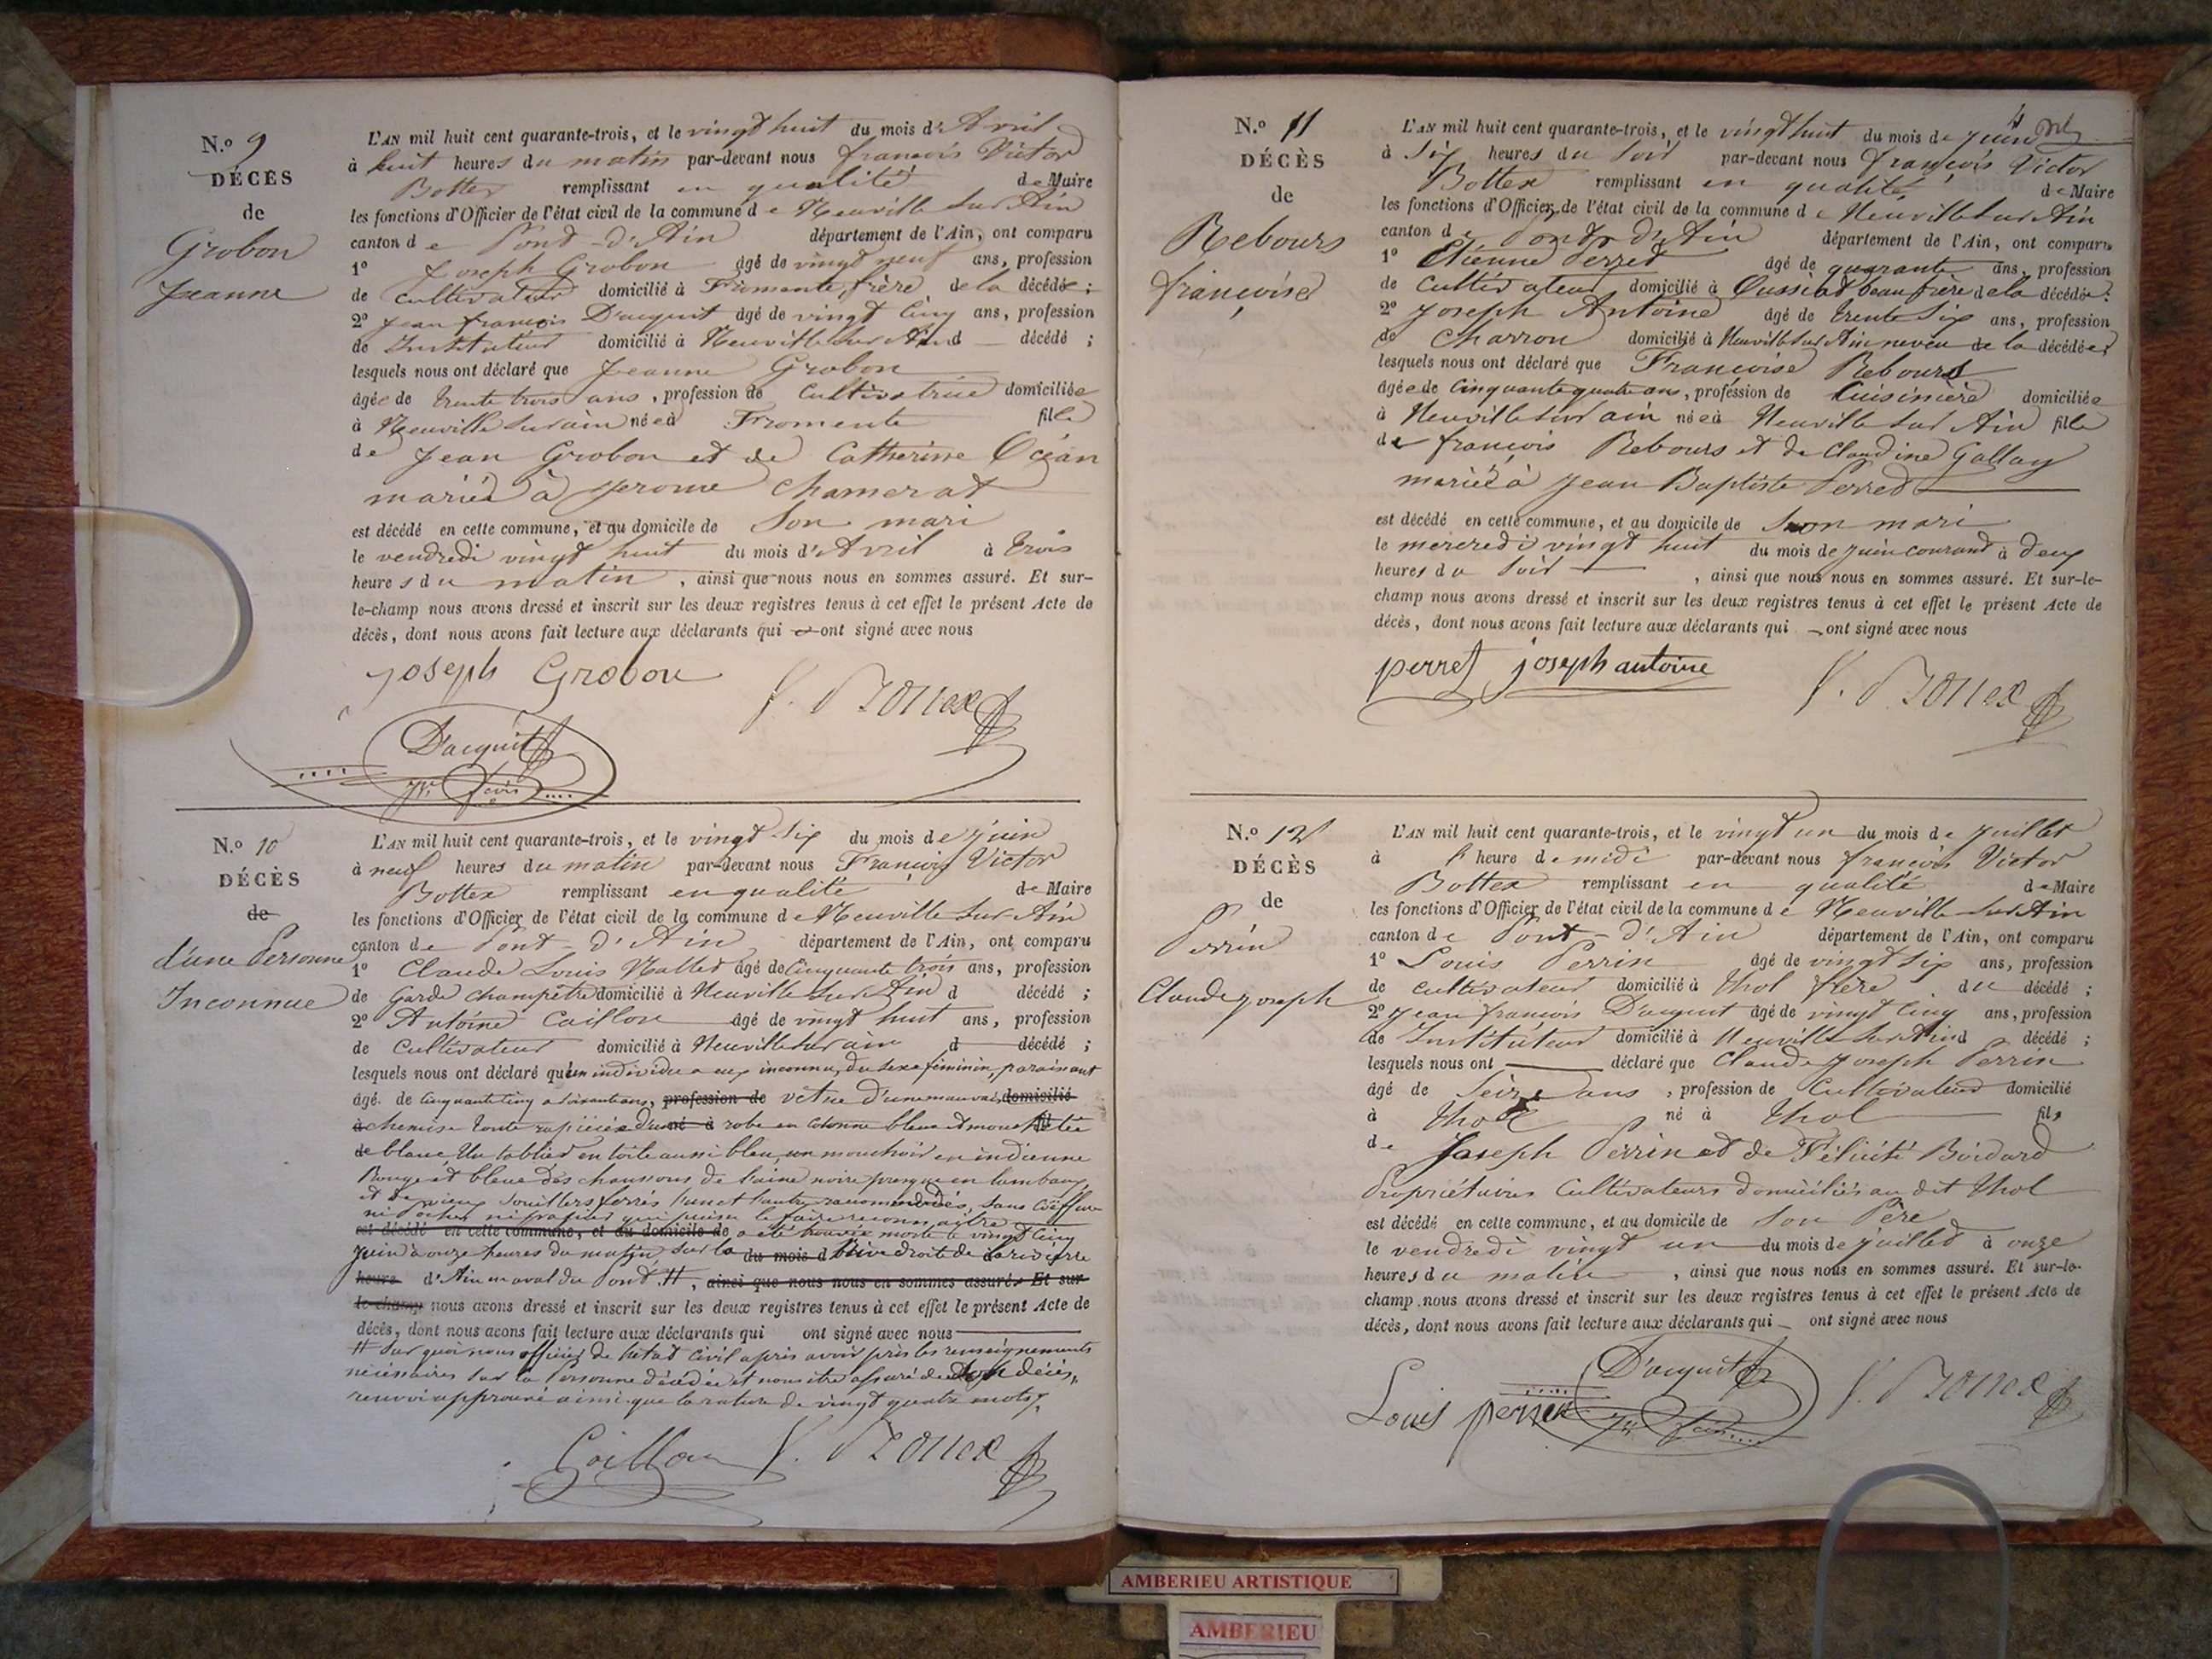 N.º 9
DÉCÈS
de
Grobon
Jeanne
L'AN mil huit cent quarante-trois, et le vingt huit du mois d'Avril
à huit heures du matin par-devant nous françois Victor
Bottex remplissant en qualité de Maire
les fonctions d'Officier de l'état civil de la commune de Neuville sur Ain
canton de Pont-d'Ain département de l'Ain, ont comparu
1º Joseph Grobon âgé de vingt neuf ans, profession
de cultivateur domicilié à Fromente, frère de la décédée ;
2º Jean françois D'acquit âgé de vingt cinq ans, profession
de Instituteur domicilié à Neuville sur Ain d décédé ;
lesquels nous ont déclaré que Jeanne Grobon
âgée de trente trois ans, profession de Cultivatrice domiciliée
à Neuville sur ain née à Fromente fille
de Jean Grobon et de Catherine Océan
mariée à Jerome Chamerat
est décédé en cette commune, et au domicile de Son mari
le vendredi vingt huit du mois d'Avril à trois
heures du matin, ainsi que nous nous en sommes assuré. Et sur-
le-champ nous avons dressé et inscrit sur les deux registres tenus à cet effet le présent Acte de
décès, dont nous avons fait lecture aux déclarants qui ont signé avec nous
joseph Grobon
f. Bottex
D'acquit
jn fcois
N.º 10
DÉCÈS
de
d'une Personne
Inconnue
L'AN mil huit cent quarante-trois, et le vingt Six du mois de juin
à neuf heures du matin par-devant nous François Victor
Bottex remplissant en qualité de Maire
les fonctions d'Officier de l'état civil de la commune de Neuville sur Ain
canton de Pont-d'Ain département de l'Ain, ont comparu
1º Claude Louis Mallet âgé de Cinquante trois ans, profession
de Garde champêtre domicilié à Neuville sur Ain d décédé ;
2º Antoine Caillon âgé de vingt huit ans, profession
de Cultivateur domicilié à Neuville sur ain d décédé ;
lesquels nous ont déclaré qu'un individu a eux inconnu, du Sexe féminin, paraissant
âgé de Cinquante cinq a soixante ans, profession de vêtue d'une mauvaise domicilié
à chemise toute rapiécée d'une né à robe en Cotonne bleue et mouchetée
de blanc Un tablier en toile aussi bleu, un mouchoir en indienne
Rouge et bleue des chaussons de laine noire presque en lambeaux
et de vieux Souilliers ferrés l'un et l'autre racommodés, Sans Coëffure
ni Poches, ni papier qui puisse le faire reconnaitre
est décédé en cette commune, et au domicile de a été trouvée morte le vingt Cinq
juin à onze heures du matin sur la du mois d Rive droite de la rivière
heure d'Ain en aval du Pont #, ainsi que nous nous en sommes assuré. Et sur
le-champ nous avons dressé et inscrit sur les deux registres tenus à cet effet le présent Acte de
décès, dont nous avons fait lecture aux déclarants qui ont signé avec nous
# Sur quoi nous officier de l'état civil après avoir pris les renseignements
nécessaires sur la Personne décédée et nous être assuré de son décès,
renvoi approuvé ainsi que la rature de vingt quatre mots
Caillon f. Bottex
N.º 11
DÉCÈS
de
Rebours
françoise
L'AN mil huit cent quarante-trois, et le vingt huit du mois de juin
à Six heures du Soir par-devant nous françois Victor
Bottex remplissant en qualité de Maire
les fonctions d'Officier de l'état civil de la commune de Neuville sur Ain
canton de Pont d'Ain département de l'Ain, ont comparu
1º Etienne Perret âgé de quarante ans, profession
de Cultivateur domicilié à Oussiat beau frère de la décédée ;
2º Joseph Antoine âgé de trente Six ans, profession
de Charron domicilié à Neuville sur Ain neveu de la décédée
lesquels nous ont déclaré que Françoise Rebours
âgée de Cinquante quatre ans, profession de Cuisinière domiciliée
à Neuville sur ain née à Neuville sur Ain fille
de françois Rebours et de Claudine Gallay
mariée à Jean Baptiste Perret
est décédé en cette commune, et au domicile de Son mari
le mercredi vingt huit du mois de juin courant à deux
heures du Soir, ainsi que nous nous en sommes assuré. Et sur-le-
champ nous avons dressé et inscrit sur les deux registres tenus à cet effet le présent Acte de
décès, dont nous avons fait lecture aux déclarants qui ont signé avec nous
perret joseph antoine f. Bottex
N.º 12
DÉCÈS
de
Perrin
Claude joseph
L'AN mil huit cent quarante-trois, et le vingt un du mois de juillet
à l'heure de midi par-devant nous françois Victor
Bottex remplissant en qualité de Maire
les fonctions d'Officier de l'état civil de la commune de Neuville sur Ain
canton de Pont-d'Ain département de l'Ain, ont comparu
1º Louis Perrin âgé de vingt Six ans, profession
de cultivateur domicilié à Thol frère du décédé ;
2º Jean françois D'acquit âgé de vingt Cinq ans, profession
de Instituteur domicilié à Neuville sur Ain d décédé ;
lesquels nous ont déclaré que Claude Joseph Perrin
âgé de Seize ans, profession de Cultivateur domicilié
à Thol né à Thol fils
de Joseph Perrin et de Félicité Boidard
Propriétaires Cultivateurs domiciliés au dit Thol
est décédé en cette commune, et au domicile de Son Père
le vendredi vingt un du mois de juillet à onze
heures du matin, ainsi que nous nous en sommes assuré. Et sur-le-
champ nous avons dressé et inscrit sur les deux registres tenus à cet effet le présent Acte de
décès, dont nous avons fait lecture aux déclarants qui ont signé avec nous
D'acquit
Louis perrin
jn fcois
f. Bottex
AMBERIEU ARTISTIQUE
AMBERIEU